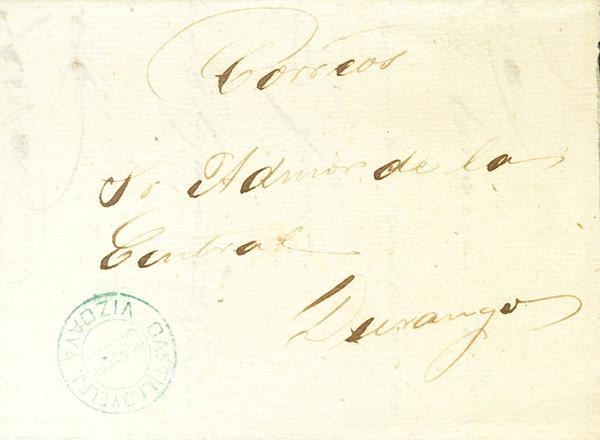 Correos
Sr. Admor de la
Central
Durango
CASTILLO Y ELEJ
VIZCAYA